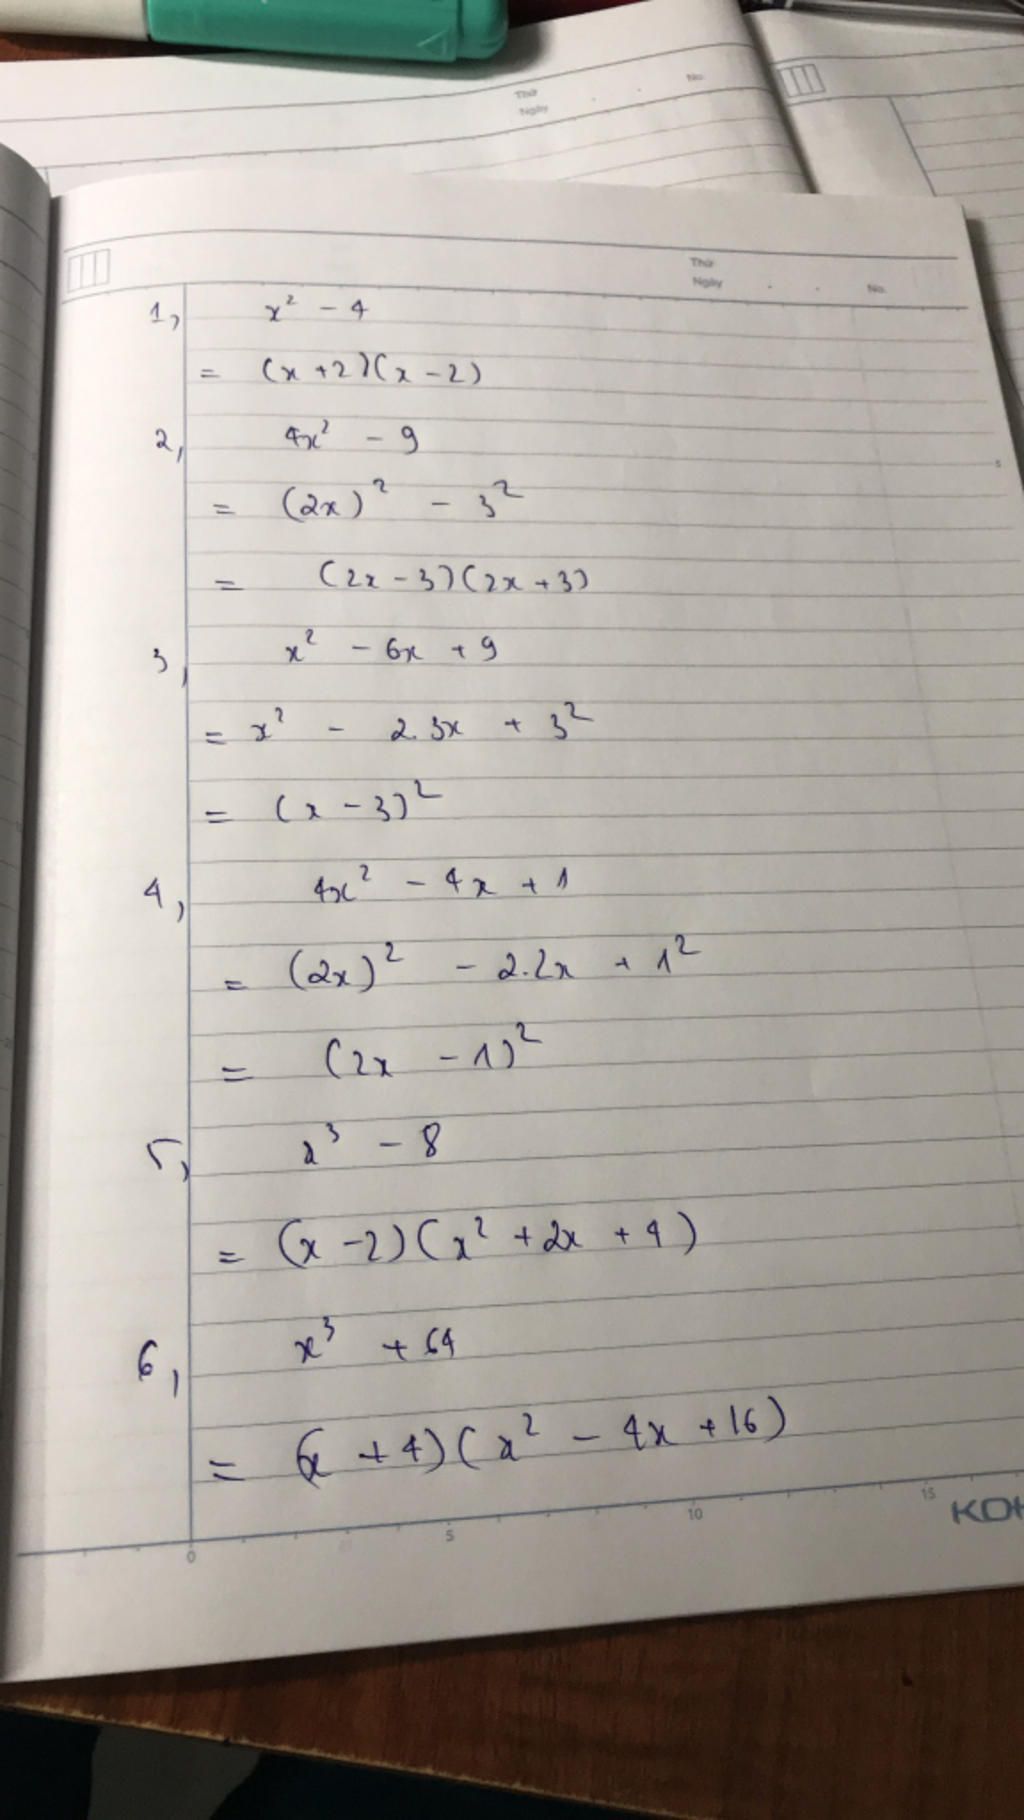 Thứ
Ngày
No.
Thứ
Ngày
No.
1, x² - 4
= (x + 2)(x - 2)
2, 4x² - 9
= (2x)² - 3²
= (2x - 3)(2x + 3)
3, x² - 6x + 9
= x² - 2.3x + 3²
= (x - 3)²
4, 4x² - 4x + 1
= (2x)² - 2.2x + 1²
= (2x - 1)²
5, x³ - 8
= (x - 2)(x² + 2x + 4)
6, x³ + 64
= (x + 4)(x² - 4x + 16)
0 5 10 15